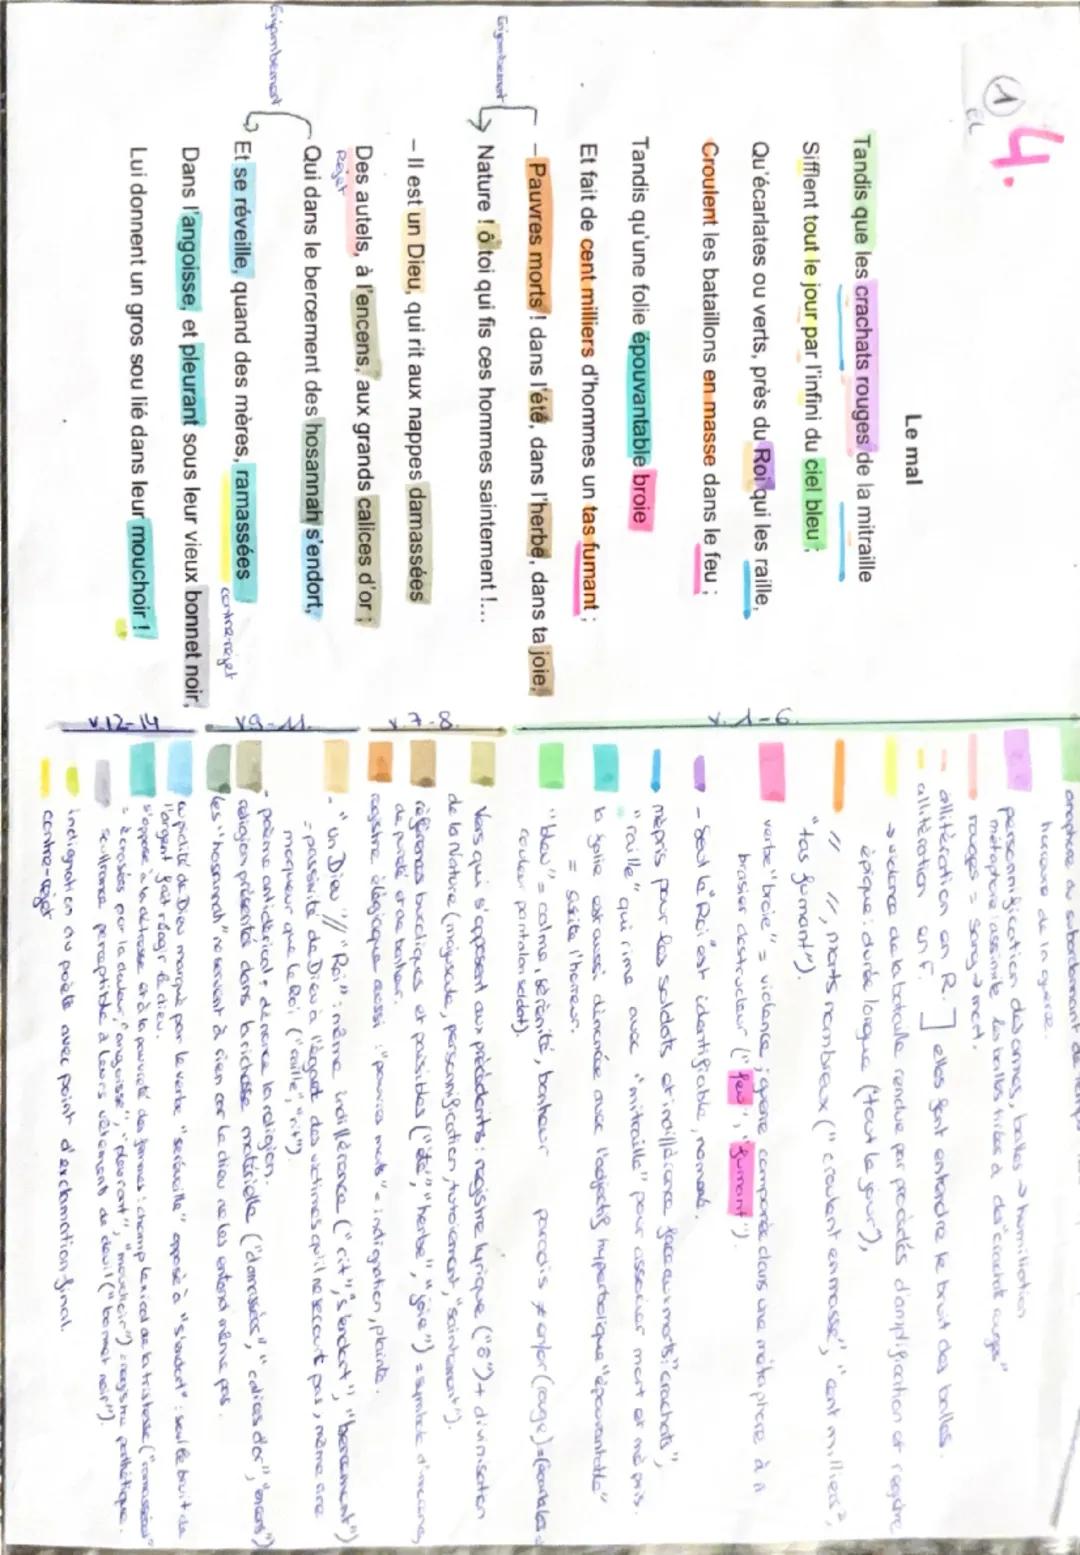 ① 4.
EL
Le mal
Tandis que les crachats rouges de la mitraille
Sifflent tout le jour par l'infini du ciel bleu ;
Qu'écarlates ou verts, près du Roi qui les raille,
Croulent les bataillons en masse dans le feu ;
Tandis qu'une folie épouvantable broie
Et fait de cent milliers d'hommes un tas fumant ;
Enjambement
– Pauvres morts ! dans l'été, dans l'herbe, dans ta joie,
Nature ! ô toi qui fis ces hommes saintement !...
– Il est un Dieu, qui rit aux nappes damassées
Des autels, à l'encens, aux grands calices d'or ;
Rejet
Qui dans le bercement des hosannah s'endort,
Enjambement
Et se réveille, quand des mères, ramassées
contre-rejet
Dans l'angoisse, et pleurant sous leur vieux bonnet noir,
Lui donnent un gros sou lié dans leur mouchoir !
v. 1-6.
anaphore
horreur de la guerre.
personnification des armes, balles → humiliation
métaphore : assimile les balles tirées à des "crachats rouges"
rouges = sang → mort.
allitération en R. ] elles font entendre le bruit des balles.
allitération en F.
→ violence de la bataille rendue par procédés d'amplification et registre
épique : durée longue ("tout le jour"),
// //, morts nombreux ("croulent en masse", "cent milliers",
"tas fumant").
verbe "broie" = violence ; guerre comparée dans une métaphore à 1
brasier destructeur ("feu", "fumant").
- Seul le "Roi" est identifiable, nommé.
mépris pour les soldats et indifférence face aux morts : "crachats",
"raille" qui rime avec "mitraille" pour associer mort et mépris.
la folie est aussi dénoncée avec l'adjectif hyperbolique "épouvantable"
= insiste l'horreur.
"bleu" = calme, sérénité, bonheur paradis ≠ enfer (rouge)
couleur pantalon soldat).
v. 7-8.
Vers qui s'opposent aux précédents : registre lyrique ("ô") + divinisation
de la Nature (majuscule, personnification, tutoiement, "saintement").
références bucoliques et paisibles ("été", "herbe", "joie") = symbole
de pureté et de bonheur.
registre élégiaque aussi : "pauvres morts" = indignation, plainte.
v. 9-11.
- "un Dieu" // "Roi" : même indifférence ("rit", "s'endort", "bercement")
= passivité de Dieu à l'égard des victimes qu'il ne secourt pas, même ire
moqueur que le Roi ("raille", "rit").
- poème anticlérical, dénonce la religion.
religion présentée dans la richesse matérielle ("damassées", "calices d'or", "encens")
les "hosannah" ne servent à rien car le dieu ne les entend même pas.
v. 12-14
cupidité de Dieu marqué par le verbe "se réveille" opposé à "s'endort" : seul le bruit de
l'argent fait réagir le dieu.
s'oppose à la détresse et à la pauvreté des femmes : champ lexical de la tristesse ("ramassées"
= écrasées par la douleur, "angoisse", "pleurant", "mouchoir") : registre pathétique.
souffrance perceptible à leurs vêtements de deuil ("bonnet noir").
indignation du poète avec point d'exclamation final.
contre-rejet